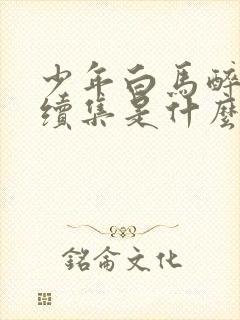 少年白馬醉
續集是什麼
銘侖文化